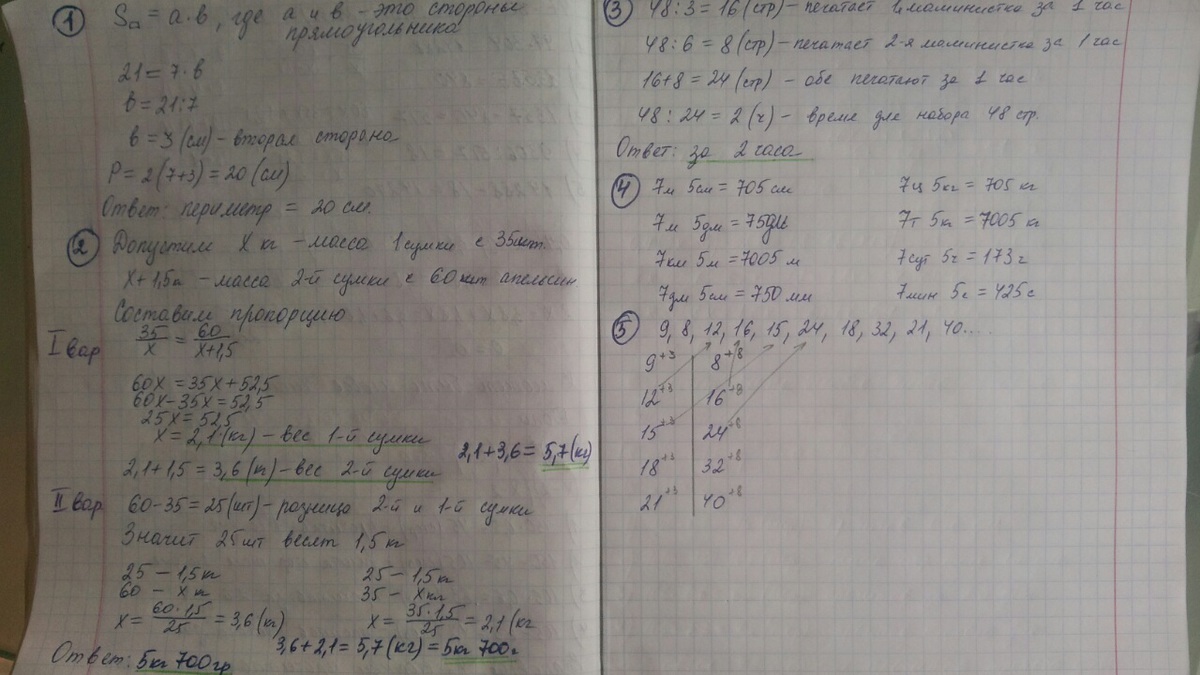 ① Sп = а·в, где а и в - это стороны
прямоугольника
21 = 7·в
в = 21:7
в = 3 (см) - вторая сторона
P = 2(7+3) = 20 (см)
Ответ: периметр = 20 см.
② Допустим х кг - масса 1 сумки с 35 шт.
х+1,5 - масса 2-й сумки с 60 шт апельсин
Составим пропорцию
I вар 35/х = 60/х+1,5
60х = 35х+52,5
60х-35х = 52,5
25х = 52,5
х = 2,1 (кг) - вес 1-й сумки
2,1+1,5 = 3,6 (кг) - вес 2-й сумки
2,1+3,6 = 5,7 (кг)
II вар 60-35 = 25 (шт) - разница 2-й и 1-й сумки
Значит 25 шт весят 1,5 кг
25 - 1,5 кг
60 - х кг
х = 60·1,5/25 = 3,6 (кг)
25 - 1,5 кг
35 - х кг
х = 35·1,5/25 = 2,1 (кг
3,6+2,1 = 5,7 (кг) = 5кг 700г
Ответ: 5кг 700гр
③ 48:3 = 16 (стр) - печатает 1я машинистка за 1 час
48:6 = 8 (стр) - печатает 2-я машинистка за 1 час
16+8 = 24 (стр) - обе печатают за 1 час
48:24 = 2 (ч) - время для набора 48 стр.
Ответ: за 2 часа
④ 7м 5см = 705 см 7ц 5кг = 705 кг
7м 5дм = 75дм 7т 5кг = 7005 кг
7км 5м = 7005 м 7сут 5ч = 173 ч
7дм 5см = 750 мм 7мин 5с = 425 с
⑤ 9, 8, 12, 16, 15, 24, 18, 32, 21, 40....
9 +3 8 +8
12 +3 16 +8
15 +3 24 +8
18 +3 32 +8
21 +3 40 +8